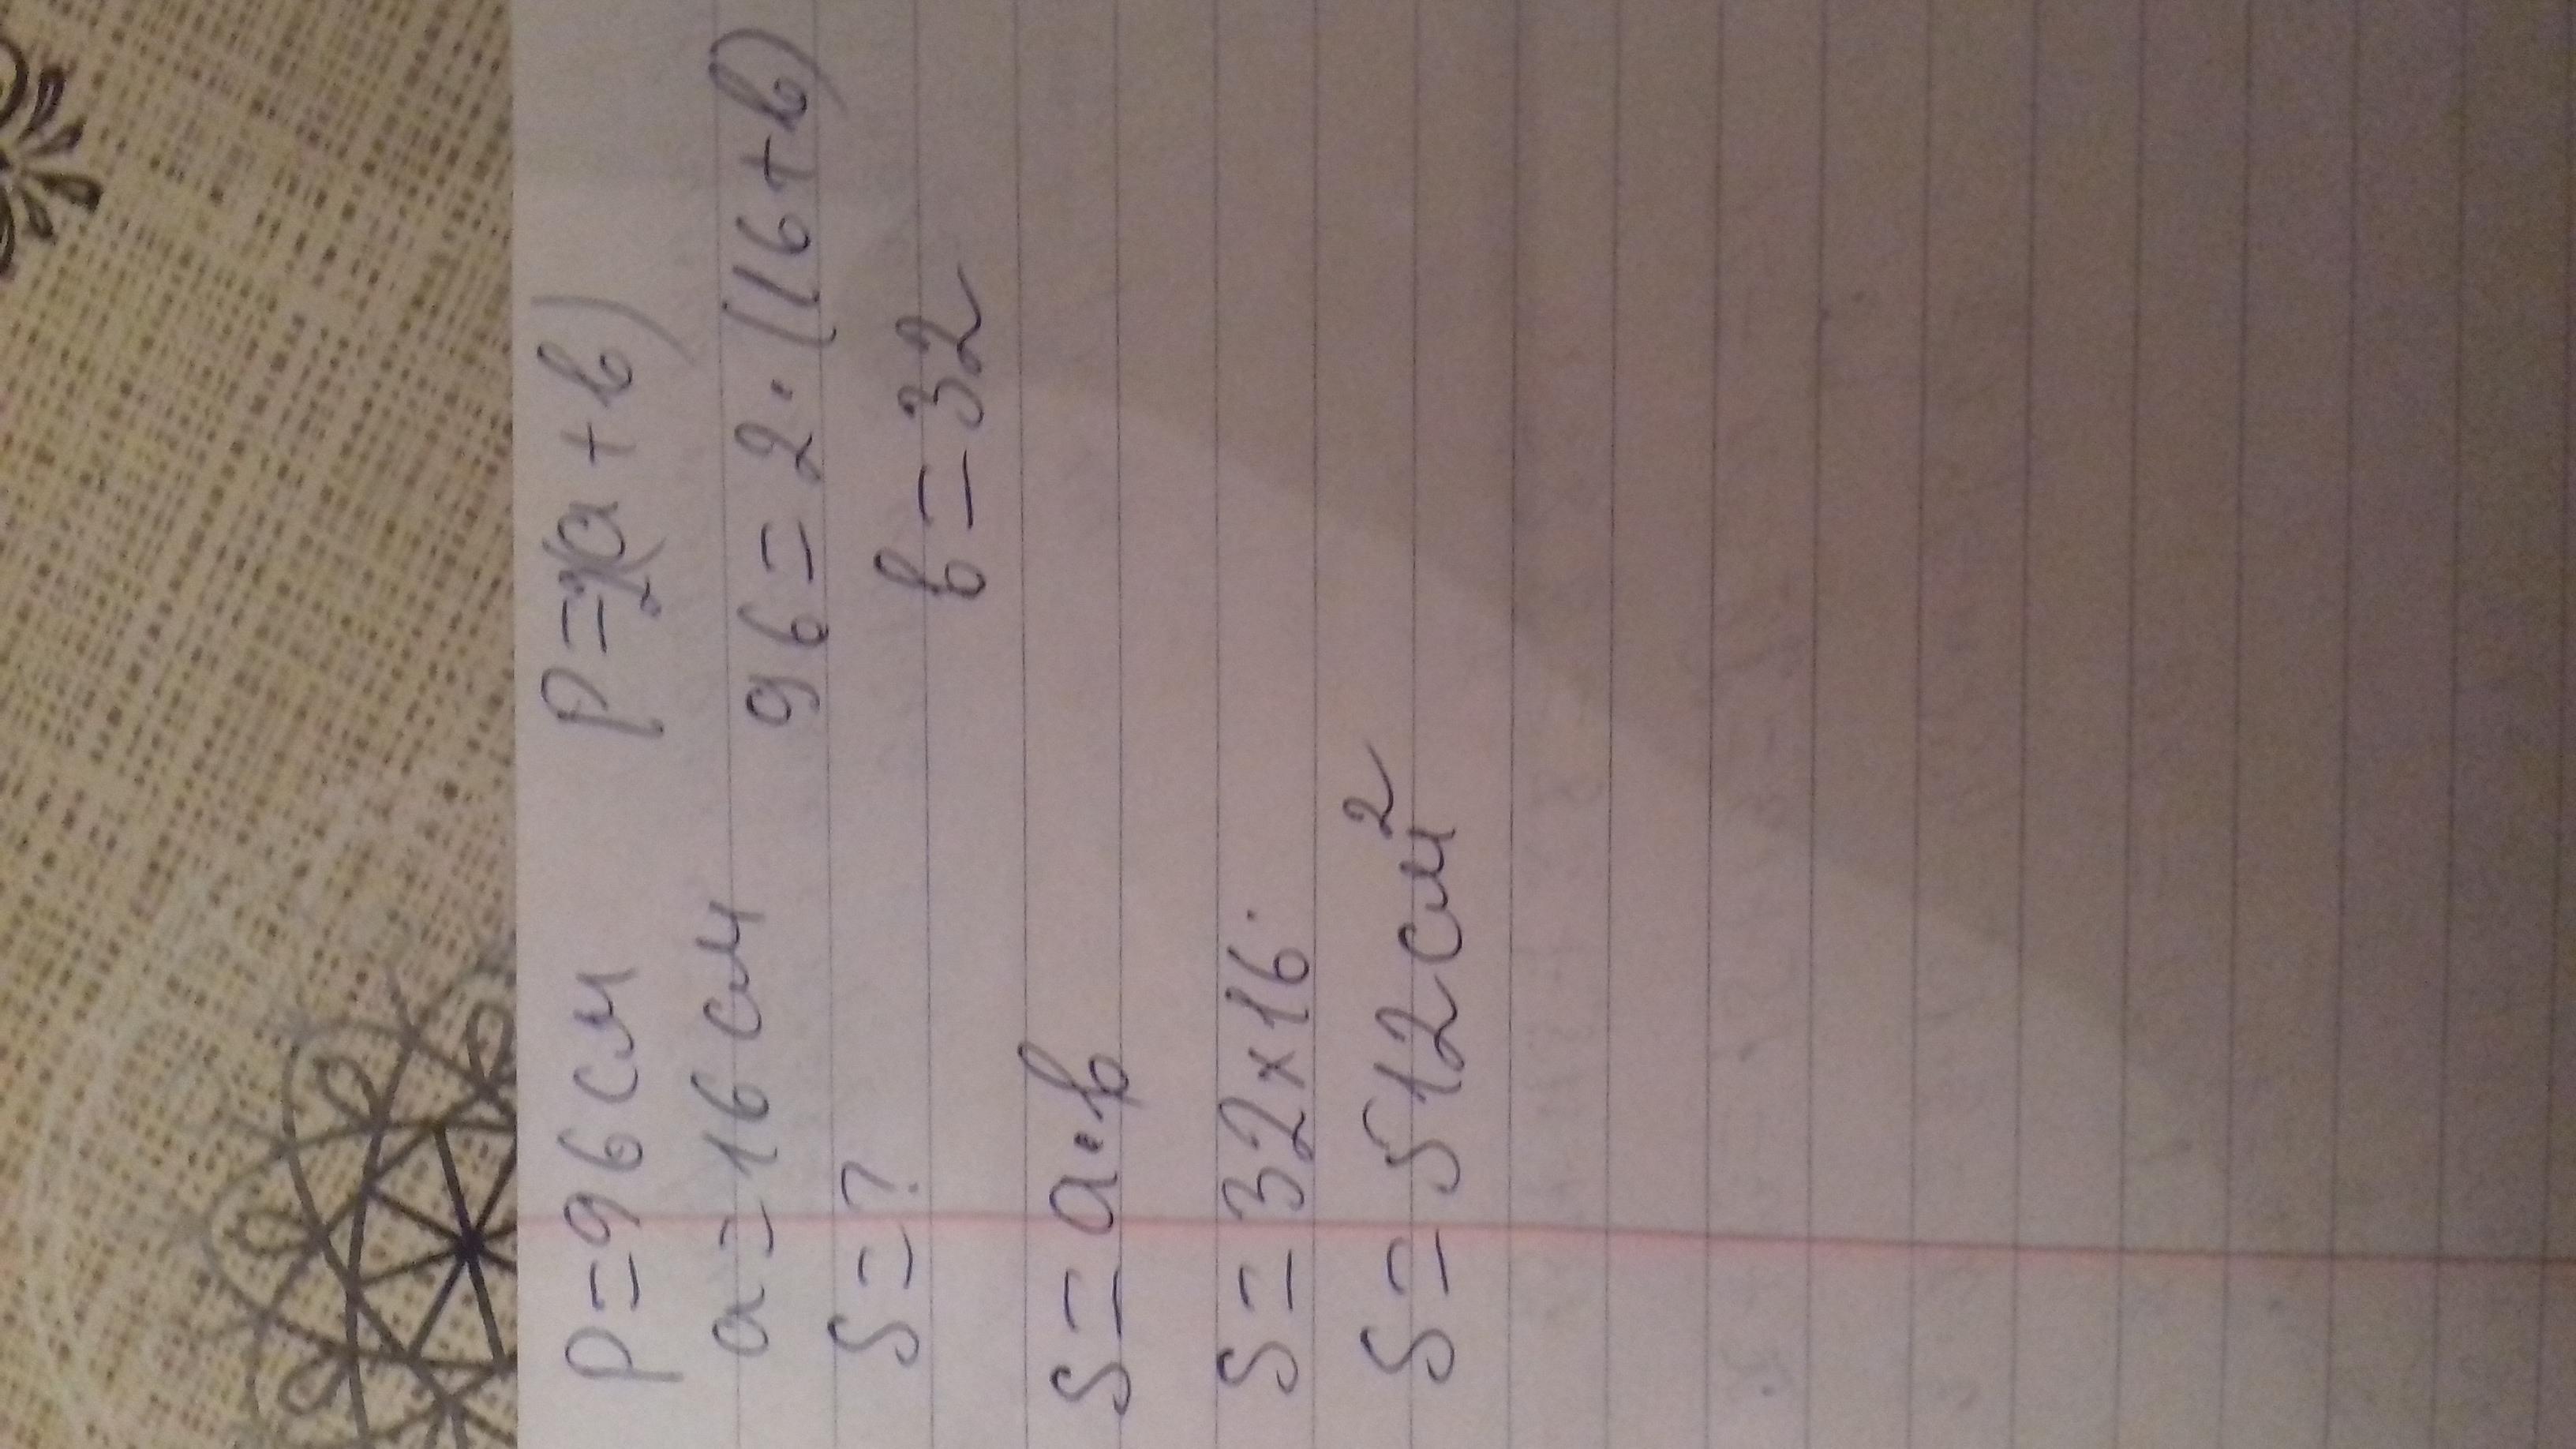 P=96 см P=2(a+b)
a=16 см 96=2·(16+b)
S=? b=32
S=a·b
S=32×16
S=512 см²